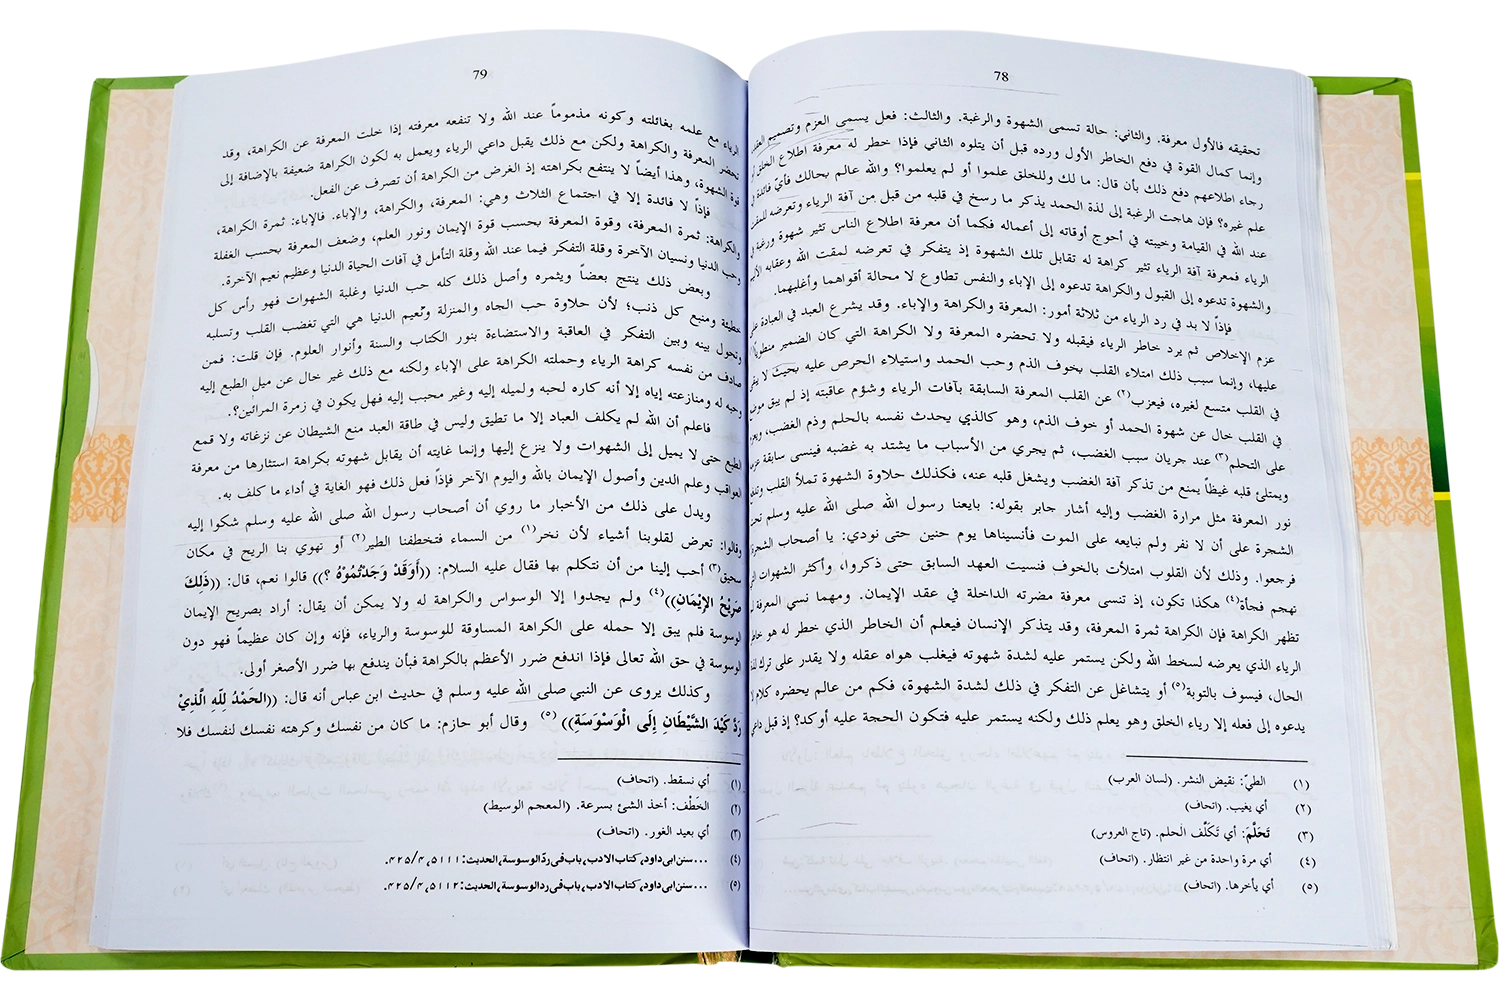 78
تحقيقه فالأول معرفة. والثاني: حالة تسمى الشهوة والرغبة. والثالث: فعل يسمى العزم وتصميم
وإنما كمال القوة في دفع الخاطر الأول ورده قبل أن يتلوه الثاني فإذا خطر له معرفة اطلاع الخلق
رجاء اطلاعهم دفع ذلك بأن قال: ما لك وللخلق علموا أو لم يعلموا؟ والله عالم بحالك فأيّ فائدة في
علم غيره؟ فإن هاجت الرغبة إلى لذة الحمد يذكر ما رسخ في قلبه من قبل من آفة الرياء وتعرضه للمقت
عند الله في القيامة وخيبته في أحوج أوقاته إلى أعماله فكما أن معرفة اطلاع الناس تثير شهوة ورغبة في
الرياء فمعرفة آفة الرياء تثير كراهة له تقابل تلك الشهوة إذ يتفكر في تعرضه لمقت الله وعقابه
والشهوة تدعوه إلى القبول والكراهة تدعوه إلى الإباء والنفس تطاوع لا محالة أقواهما وأغلبهما.
فإذاً لا بد في رد الرياء من ثلاثة أمور: المعرفة والكراهة والإباء. وقد يشرع العبد في العبادة على
عزم الإخلاص ثم يرد خاطر الرياء فيقبله ولا تحضره المعرفة ولا الكراهة التي كان الضمير منطوياً
عليها، وإنما سبب ذلك امتلاء القلب بخوف الذم وحب الحمد واستيلاء الحرص عليه بحيث لا
في القلب متسع لغيره، فيعزب(٢) عن القلب المعرفة السابقة بآفات الرياء وشؤم عاقبته إذ لم يبق موضع
في القلب خال عن شهوة الحمد أو خوف الذم، وهو كالذي يحدث نفسه بالحلم وذم الغضب،
على التحلم(٣) عند جريان سبب الغضب، ثم يجري من الأسباب ما يشتد به غضبه فينسى سابقة
ويمتلئ قلبه غيظاً يمنع من تذكر آفة الغضب ويشغل قلبه عنه، فكذلك حلاوة الشهوة تملأ القلب
نور المعرفة مثل مرارة الغضب وإليه أشار جابر بقوله: بايعنا رسول الله صلى الله عليه وسلم تحت
الشجرة على أن لا نفر ولم نبايعه على الموت فأنسيناها يوم حنين حتى نودي: يا أصحاب الشجرة
فرجعوا. وذلك لأن القلوب امتلأت بالخوف فنسيت العهد السابق حتى ذكروا، وأكثر الشهوات التي
تهجم فجأة(٤) هكذا تكون، إذ تنسى معرفة مضرته الداخلة في عقد الإيمان. ومهما نسي المعرفة لم
تظهر الكراهة فإن الكراهة ثمرة المعرفة، وقد يتذكر الإنسان فيعلم أن الخاطر الذي خطر له هو خاطر
الرياء الذي يعرضه لسخط الله ولكن يستمر عليه لشدة شهوته فيغلب هواه عقله ولا يقدر على ترك لذة
الحال، فيسوف بالتوبة(٥) أو يتشاغل عن التفكر في ذلك لشدة الشهوة، فكم من عالم يحضره كلام لا
يدعوه إلى فعله إلا رياء الخلق وهو يعلم ذلك ولكنه يستمر عليه فتكون الحجة عليه أوكد؟ إذ قبل داعي
(١) الطيّ: نقيض النشر. (لسان العرب)
(٢) أي يغيب. (اتحاف)
(٣) تَحَلَّمَ: أي تَكَلَّفَ الحلم. (تاج العروس)
(٤) أي مرة واحدة من غير انتظار. (اتحاف)
(٥) أي يأخرها. (اتحاف)
79
الرياء مع علمه بغائلته وكونه مذموماً عند الله ولا تنفعه معرفته إذا خلت المعرفة عن الكراهة، وقد
تحضر المعرفة والكراهة ولكن مع ذلك يقبل داعي الرياء ويعمل به لكون الكراهة ضعيفة بالإضافة إلى
قوة الشهوة، وهذا أيضاً لا ينتفع بكراهته إذ الغرض من الكراهة أن تصرف عن الفعل.
فإذاً لا فائدة إلا في اجتماع الثلاث وهي: المعرفة، والكراهة، والإباء. فالإباء: ثمرة الكراهة،
والكراهة: ثمرة المعرفة، وقوة المعرفة بحسب قوة الإيمان ونور العلم، وضعف المعرفة بحسب الغفلة
وحب الدنيا ونسيان الآخرة وقلة التفكر فيما عند الله وقلة التأمل في آفات الحياة الدنيا وعظيم نعيم الآخرة.
وبعض ذلك ينتج بعضاً ويثمره وأصل ذلك كله حب الدنيا وغلبة الشهوات فهو رأس كل
خطيئة ومنبع كل ذنب؛ لأن حلاوة حب الجاه والمنزلة ونعيم الدنيا هي التي تغضب القلب وتسلبه
وتحول بينه وبين التفكر في العاقبة والاستضاءة بنور الكتاب والسنة وأنوار العلوم. فإن قلت: فمن
صادف من نفسه كراهة الرياء وحملته الكراهة على الإباء ولكنه مع ذلك غير خال عن ميل الطبع إليه
وحبه له ومنازعته إياه إلا أنه كاره لحبه ولميله إليه وغير محبب إليه فهل يكون في زمرة المرائين؟.
فاعلم أن الله لم يكلف العباد إلا ما تطيق وليس في طاقة العبد منع الشيطان عن نزغاته ولا قمع
الطبع حتى لا يميل إلى الشهوات ولا ينزع إليها وإنما غايته أن يقابل شهوته بكراهة استثارها من معرفة
العواقب وعلم الدين وأصول الإيمان بالله واليوم الآخر فإذاً فعل ذلك فهو الغاية في أداء ما كلف به.
ويدل على ذلك من الأخبار ما روي أن أصحاب رسول الله صلى الله عليه وسلم شكوا إليه
وقالوا: تعرض لقلوبنا أشياء لأن نخر(١) من السماء فتخطفنا الطير(٢) أو تهوي بنا الريح في مكان
سحيق(٣) أحب إلينا من أن نتكلم بها فقال عليه السلام: ((أَوَقَدْ وَجَدْتُمُوْهُ ؟)) قالوا نعم، قال: ((ذَلِكَ
صَرِيْحُ الإِيْمَانِ))(٤) ولم يجدوا إلا الوسواس والكراهة له ولا يمكن أن يقال: أراد بصريح الإيمان
الوسوسة فلم يبق إلا حمله على الكراهة المساوقة للوسوسة والرياء، فإنه وإن كان عظيماً فهو دون
الوسوسة في حق الله تعالى فإذا اندفع ضرر الأعظم بالكراهة فبأن يندفع بها ضرر الأصغر أولى.
وكذلك يروى عن النبي صلى الله عليه وسلم في حديث ابن عباس أنه قال: ((الحَمْدُ لِلّهِ الَّذِيْ
رَدَّ كَيْدَ الشَّيْطَانِ إِلَى الْوَسْوَسَةِ))(٥) وقال أبو حازم: ما كان من نفسك وكرهته نفسك لنفسك فلا
(١) أي نسقط. (اتحاف)
(٢) الخَطْف: أخذ الشئ بسرعة. (المعجم الوسيط)
(٣) أي بعيد الغور. (اتحاف)
(٤) ...سنن ابی داود، کتاب الادب، باب فی ردّ الوسوسة، الحدیث: ۵۱۱۱، ۴/۴۲۵.
(٥) ...سنن ابی داود، کتاب الادب، باب فی رد الوسوسة، الحدیث: ۵۱۱۲، ۴/۴۲۵.